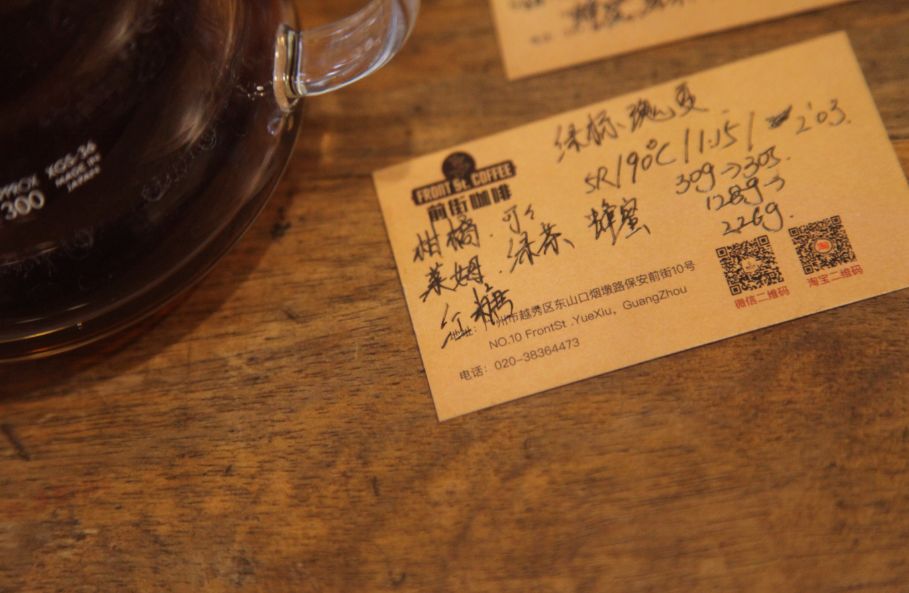 APPROX XGS-36
300 MADE IN
JAPAN
FRONT St. COFFEE
前街咖啡
绿标·瑰夏
5R/90℃/1:15/ 2'03.
30g→30s.
128g→
226g.
柑橘·可可
莱姆·绿茶 蜂蜜
红糖
地址：广州市越秀区东山口烟墩路保安前街10号
NO.10 FrontSt .YueXiu，GuangZhou
电话：020-38364473
微信二维码
淘宝二维码